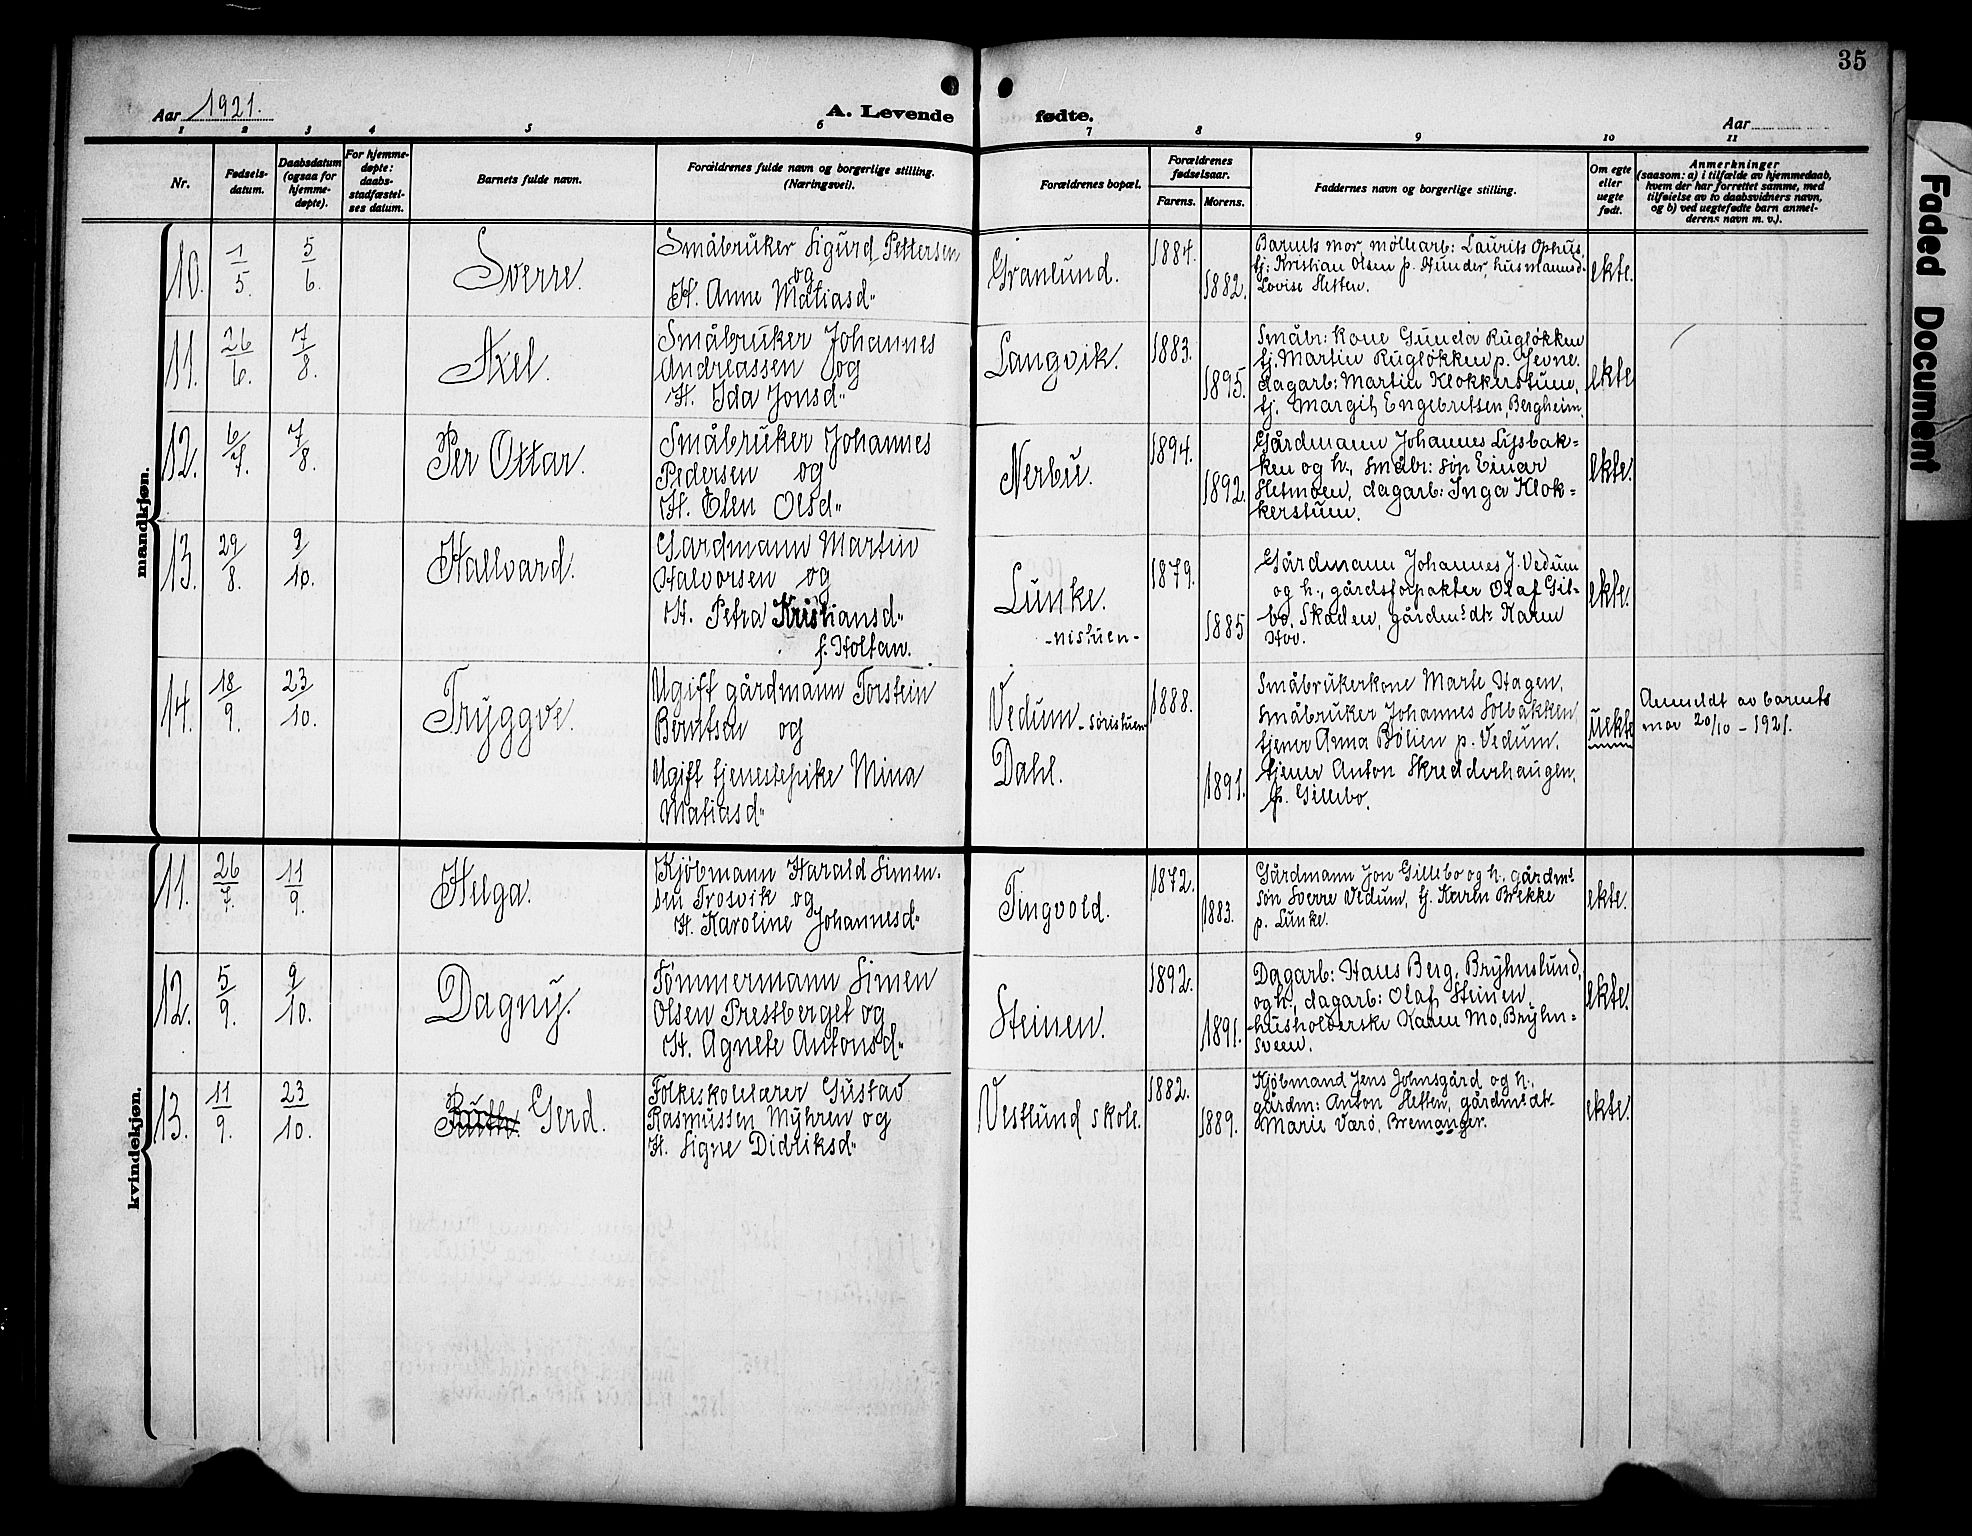 35
Aar 1921.
A. Levende fødte.
Aar
1 2 3 4 5 6 7 8 9 10 11
Nr.
Fødsels-
datum.
Daabsdatum
(ogsaa for
hjemme-
døpte).
For hjemme-
døpte:
daabs-
stadfæstel-
ses datum.
Barnets fulde navn.
Forældrenes fulde navn og borgerlige stilling.
(Næringsvei).
Forældrenes bopæl.
Forældrenes
fødselsaar.
Farens. Morens.
Faddernes navn og borgerlige stilling.
Om egte
eller
uegte
født.
Anmerkninger
(saasom: a) i tilfælde av hjemmedaab,
hvem der har forrettet samme, med
tilføielse av to daabsvidners navn,
og b) ved uegtefødte barn anmel-
derens navn m. v.).
mandkjøn.
10. 1/5. 5/6. Sverre.
Småbruker Sigurd Pettersen
og
H. Anne Matiasd"
Granlund.
1884.
1882.
Barnets mor, møllearb: Laurits Ophus,
tj: Kristian Olsen p. Hunder, husmannsd.
Lovise Sletten.
ekte.
11. 26/6. 7/8. Axel.
Småbruker Johannes
Andreassen og
H. Ida Jonsd"
Langvik.
1883.
1895.
Småbr: kone Gunda Rugløkken
tj. Martin Rugløkken p. Jevne.
dagarb: Martin Klokkerstuen,
tj. Margit Engebretsen, Bergheim.
ekte
12. 6/7. 7/8. Per Ottar.
Småbruker Johannes
Pedersen og
H. Elen Olsd"
Nerbu.
1894.
1892.
Gårdmann Johannes Lysbak=
ken og h., småbr: søn Einar
Sletmoen, dagarb: Inga Klok=
kerstuen.
ekte.
13. 29/8. 9/10. Hallvard.
Gardmann Martin
Halvorsen og
H. Petra Kristiansd"
f. Holtan.
Lunke.
-nistuen-
1879.
1885
Gårdmann Johannes J. Vedum
og h., gårdsforpakter Olaf Gil-
bo, Skaden, gårdms dtr Karen
Hov.
ekte.
14. 18/9. 23/10. Tryggve.
Ugift gårdmann Torstein
Berntsen og
Ugift tjenestepike Mina
Matiasd"
Vedum -søristuen
Dahl.
1888.
1891.
Småbrukerkone Marte Hagen,
småbruker Johannes Solbakken,
tjener Anna Bølien p. Vedum.
tjener Anton Skredderhaugen,
p. Gillebo.
uekte
Anmeldt av barnets
mor 20/10 - 1921.
kvindekjøn.
11. 26/7. 11/9. Helga.
Kjøbmann Harald Simen.
sen Trosvik og
H. Karoline Johannesd"
Tingvold.
1872.
1883.
Gårdmann Jon Gillebo og h., gårdms
søn Sverre Vedum, tj. Karen Brekke
p. Lunke.
ekte.
12. 5/9. 9/10. Dagny.
Tømmermann Simen
Olsen Prestberget og
H. Agnete Antonsd"
Steinen.
1892.
1891.
Dagarb: Hans Berg, Bryhnslund,
og h., dagarb: Olaf Steinen,
husholderske Karen Mo, Bryhn=
sveen.
ekte.
13. 11/9. 23/10. Ruth. Gerd.
Folkeskolelærer Gustav
Rasmussen Myhren og
H. Signe Didriksd"
Vestlund skole.
1882.
1889.
Kjøbmand Jens Johnsgård og h.,
gårdm: Anton Sletten, gårdms dtr
Marie Varø, Bremanger.
ekte.
Faded Document